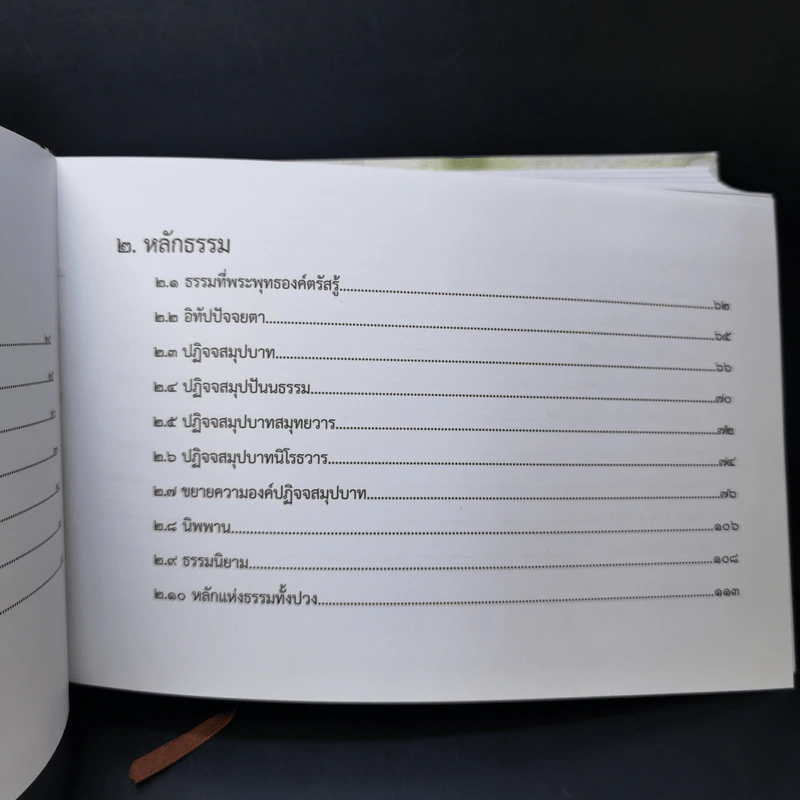 ๒. หลักธรรม
๒.๑ ธรรมที่พระพุทธองค์ตรัสรู้................๖๒
๒.๒ อิทัปปัจจยตา................๖๕
๒.๓ ปฏิจจสมุปบาท................๖๖
๒.๔ ปฏิจจสมุปปันนธรรม................๗๐
๒.๕ ปฏิจจสมุปบาทสมุทยวาร................๗๒
๒.๖ ปฏิจจสมุปบาทนิโรธวาร................๗๔
๒.๗ ขยายความองค์ปฏิจจสมุปบาท................๗๖
๒.๘ นิพพาน................๑๐๖
๒.๙ ธรรมนิยาม................๑๐๘
๒.๑๐ หลักแห่งธรรมทั้งปวง................๑๑๓